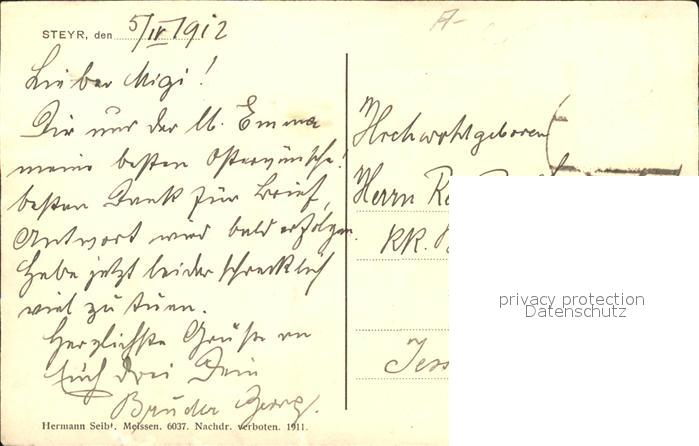 STEYR, den 5/IV 1912
Lieber Migi!
Dir und der l. Emma
meine besten Osterwünsche!
besten Dank für Brief,
Antwort wird bald erfolgen.
Habe jetzt leider schrecklich
viel zu tuen.
Herzlichste Grüße an
Euch drei Dein
Bruder Georg.
Hermann Seibt, Meissen. 6037. Nachdr. verboten. 1911.
A-
Hochwohlgeboren
Herrn
KK.
privacy protection
Datenschutz